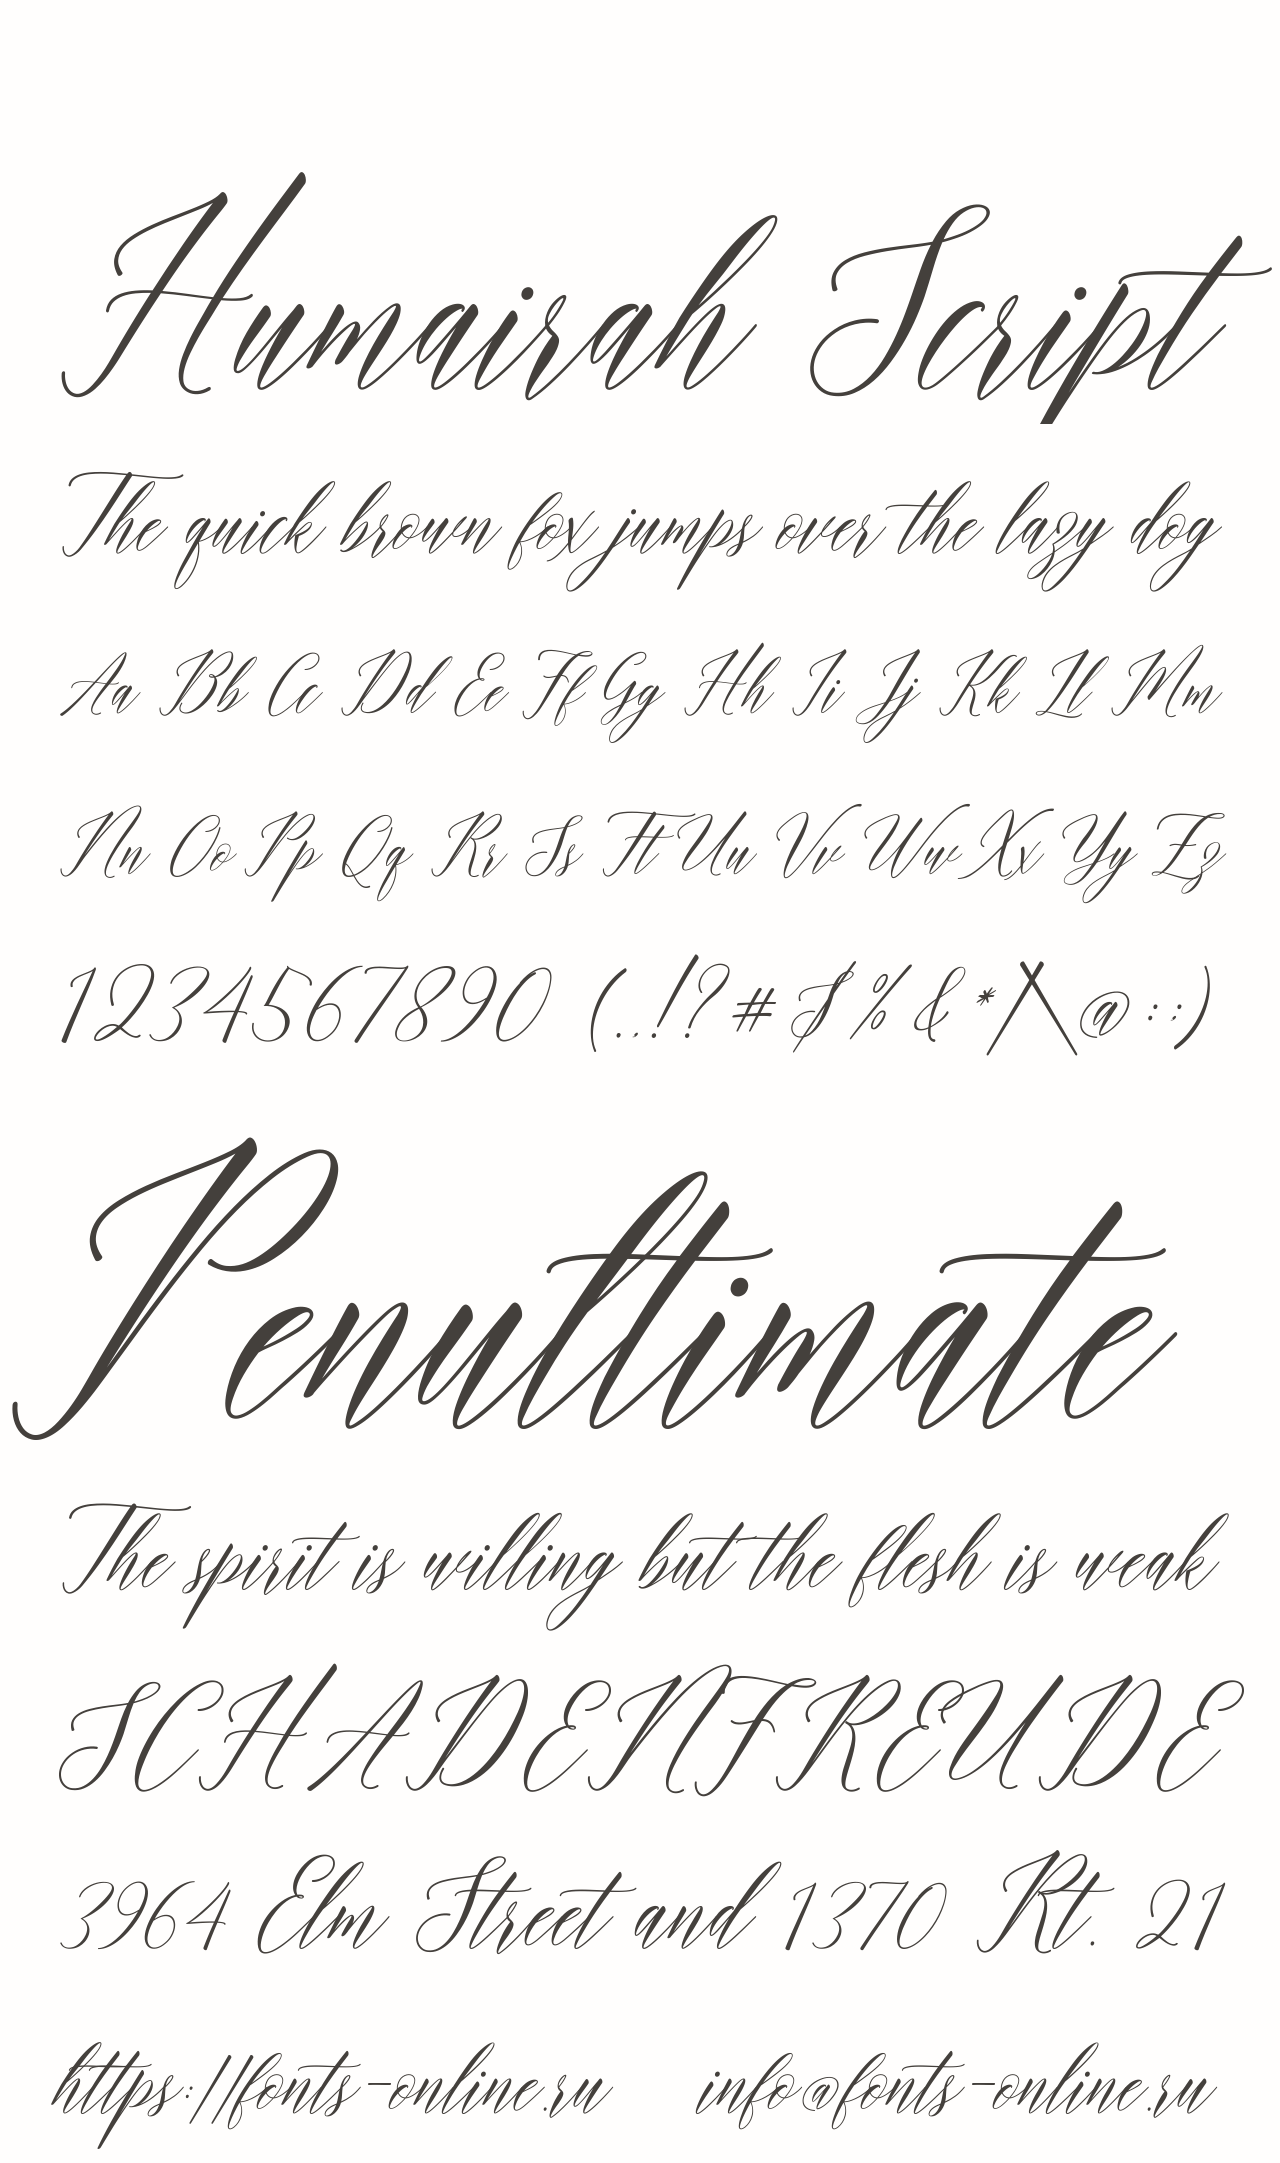 Humairah Script
The quick brown fox jumps over the lazy dog
Aa Bb Cc Dd Ee Ff Gg Hh Ii Jj Kk Ll Mm
Nn Oo Pp Qq Rr Ss Tt Uu Vv Ww Xx Yy Zz
1234567890 (.,!?#$%&*/\@:;)
Penultimate
The spirit is willing but the flesh is weak
SCHADENFREUDE
3964 Elm Street and 1370 Rt. 21
https://fonts-online.ru info@fonts-online.ru